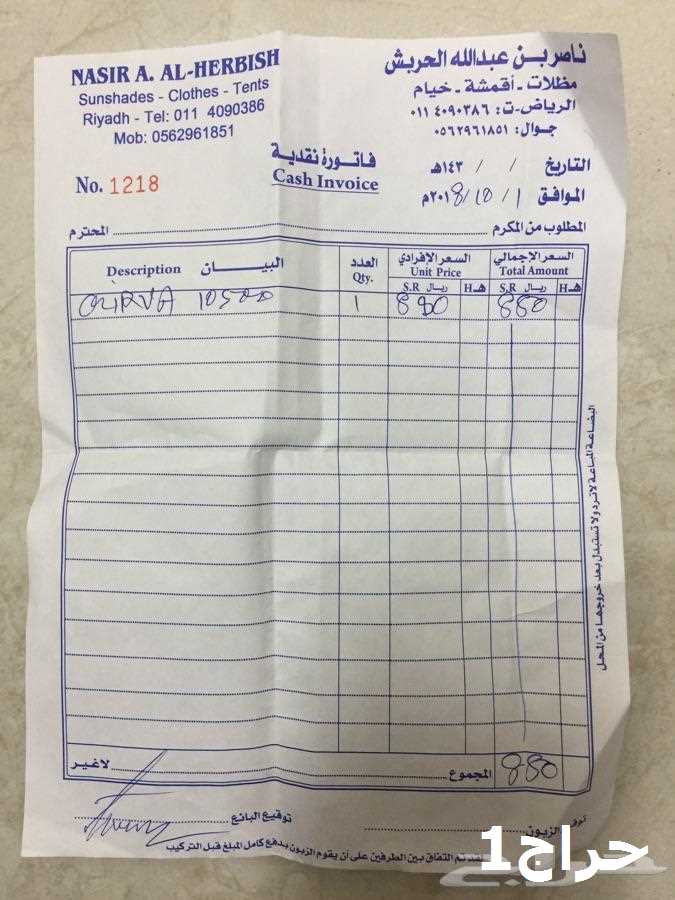 NASIR A. AL-HERBISH
Sunshades - Clothes - Tents
Riyadh - Tel: 011 4090386
Mob: 0562961851
ناصر بن عبدالله الحربش
مظلات - أقمشة - خيام
الرياض - ت: ٠١١ ٤٠٩٠٣٨٦
جوال: ٠٥٦٢٩٦١٨٥١
فاتورة نقدية
Cash Invoice
No. 1218
التاريخ / / ١٤٣هـ
الموافق ١ / 10 / ٢٠١8م
المطلوب من المكرم المحترم
Description البيـــان
العدد Qty.
السعر الإفرادي Unit Price
السعر الإجمالي Total Amount
S.R ريال H هـ S.R ريال H هـ
10500 1 880 880
البضاعة المباعة لا ترد ولا تستبدل بعد خروجها من المحل
المجموع لاغير 880
توقيع البائع
الزبون
تم التفاق بين الطرفين على أن يقوم الزبون بدفع كامل المبلغ قبل التركيب
حراج1